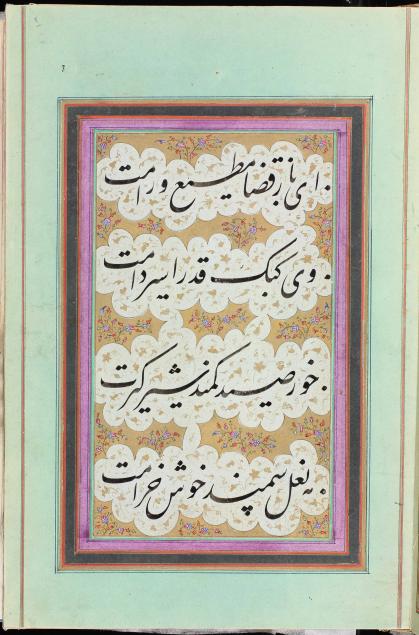 ای باز قضا مطیع و رامت
وی کبک قدر اسیر دامت
خور صید کمند شیرگیرت
مه نعل سمند خوش خرامت